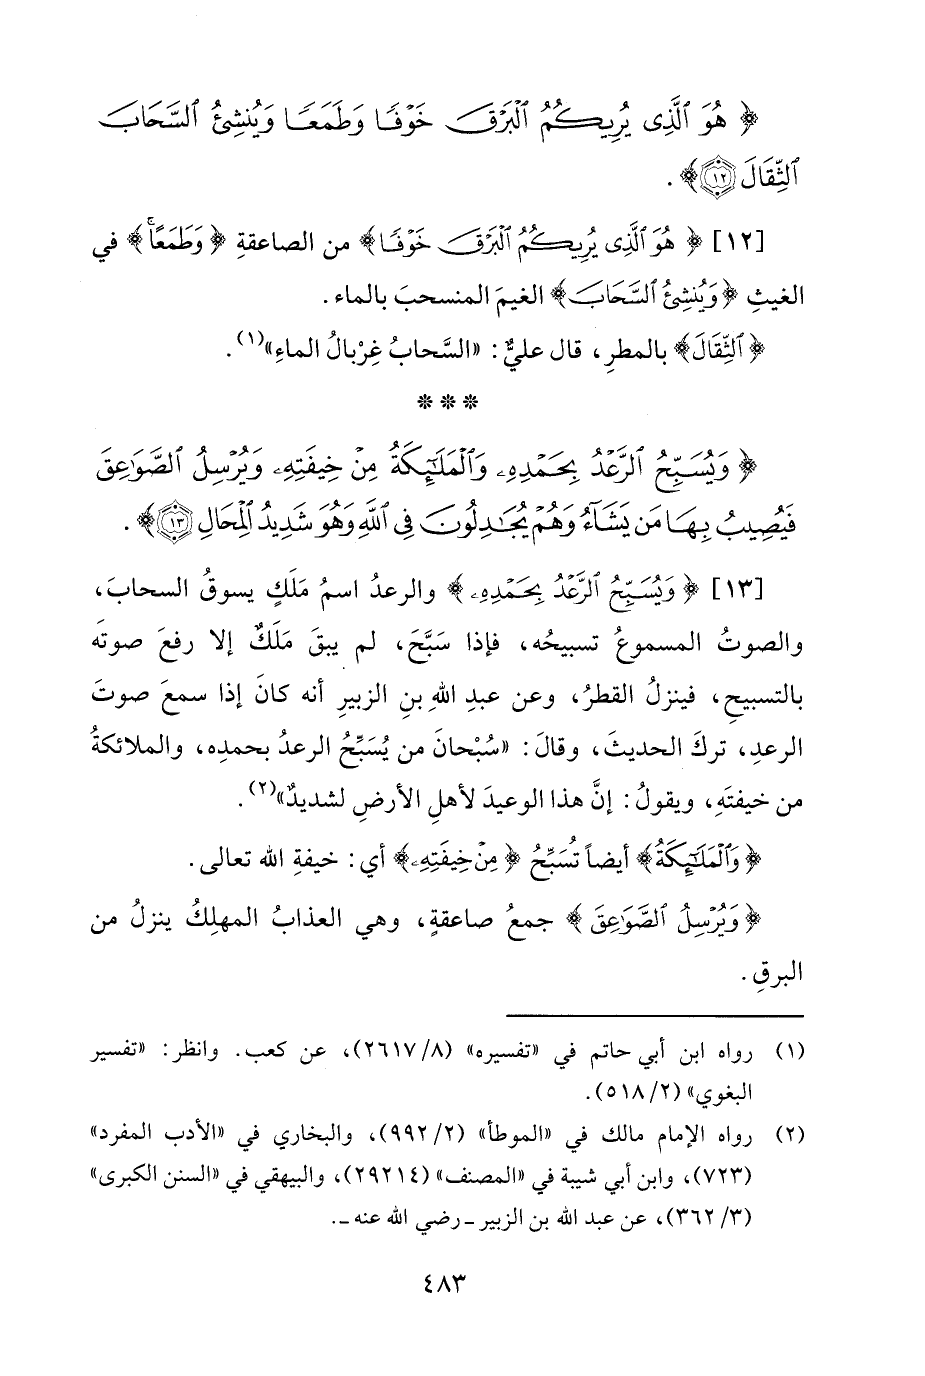 ﴿هُوَ ٱلَّذِى يُرِيكُمُ ٱلْبَرْقَ خَوْفًا وَطَمَعًا وَيُنشِئُ ٱلسَّحَابَ
ٱلثِّقَالَ ۝١٢﴾.
[١٢] ﴿هُوَ ٱلَّذِى يُرِيكُمُ ٱلْبَرْقَ خَوْفًا﴾ من الصاعقةِ ﴿وَطَمَعًا﴾ في
الغيثِ ﴿وَيُنشِئُ ٱلسَّحَابَ﴾ الغيمَ المنسحبَ بالماء.
﴿ٱلثِّقَالَ﴾ بالمطرِ، قال عليٌّ: «السَّحابُ غِرْبالُ الماءِ»(١).
***
﴿وَيُسَبِّحُ ٱلرَّعْدُ بِحَمْدِهِۦ وَٱلْمَلَٰٓئِكَةُ مِنْ خِيفَتِهِۦ وَيُرْسِلُ ٱلصَّوَٰعِقَ
فَيُصِيبُ بِهَا مَن يَشَآءُ وَهُمْ يُجَٰدِلُونَ فِى ٱللَّهِ وَهُوَ شَدِيدُ ٱلْمِحَالِ ۝١٣﴾.
[١٣] ﴿وَيُسَبِّحُ ٱلرَّعْدُ بِحَمْدِهِۦ﴾ والرعدُ اسمُ مَلَكٍ يسوقُ السحابَ،
والصوتُ المسموعُ تسبيحُه، فإذا سَبَّحَ، لم يبقَ مَلَكٌ إلا رفعَ صوتَه
بالتسبيحِ، فينزلُ القطرُ، وعن عبدِ اللهِ بنِ الزبيرِ أنه كانَ إذا سمعَ صوتَ
الرعدِ، تركَ الحديثَ، وقالَ: «سُبْحانَ من يُسَبِّحُ الرعدُ بحمدِه، والملائكةُ
من خيفتَهِ، ويقولُ: إنَّ هذا الوعيدَ لأهلِ الأرضِ لشديدٌ»(٢).
﴿وَٱلْمَلَٰٓئِكَةُ﴾ أيضاً تُسَبِّحُ ﴿مِنْ خِيفَتِهِۦ﴾ أي: خيفةِ الله تعالى.
﴿وَيُرْسِلُ ٱلصَّوَٰعِقَ﴾ جمعُ صاعقةٍ، وهي العذابُ المهلِكُ ينزلُ من
البرقِ.
(١) رواه ابن أبي حاتم في «تفسيره» (٨/ ٢٦١٧)، عن كعب. وانظر: «تفسير
البغوي» (٢/ ٥١٨).
(٢) رواه الإمام مالك في «الموطأ» (٢/ ٩٩٢)، والبخاري في «الأدب المفرد»
(٧٢٣)، وابن أبي شيبة في «المصنف» (٢٩٢١٤)، والبيهقي في «السنن الكبرى»
(٣/ ٣٦٢)، عن عبد الله بن الزبير ـ رضي الله عنه ـ.
٤٨٣